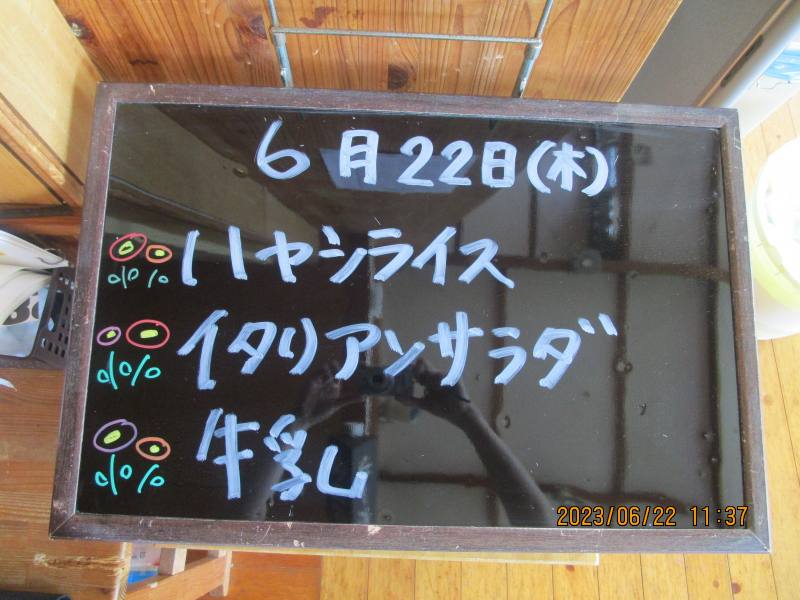 6月22日(木)
ハヤシライス
イタリアンサラダ
牛乳
2023/06/22 11:37